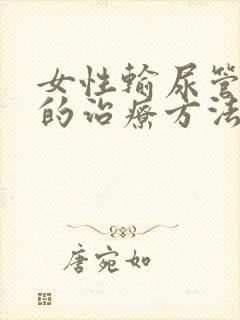 女性输尿管
的治疗方法
唐宛如